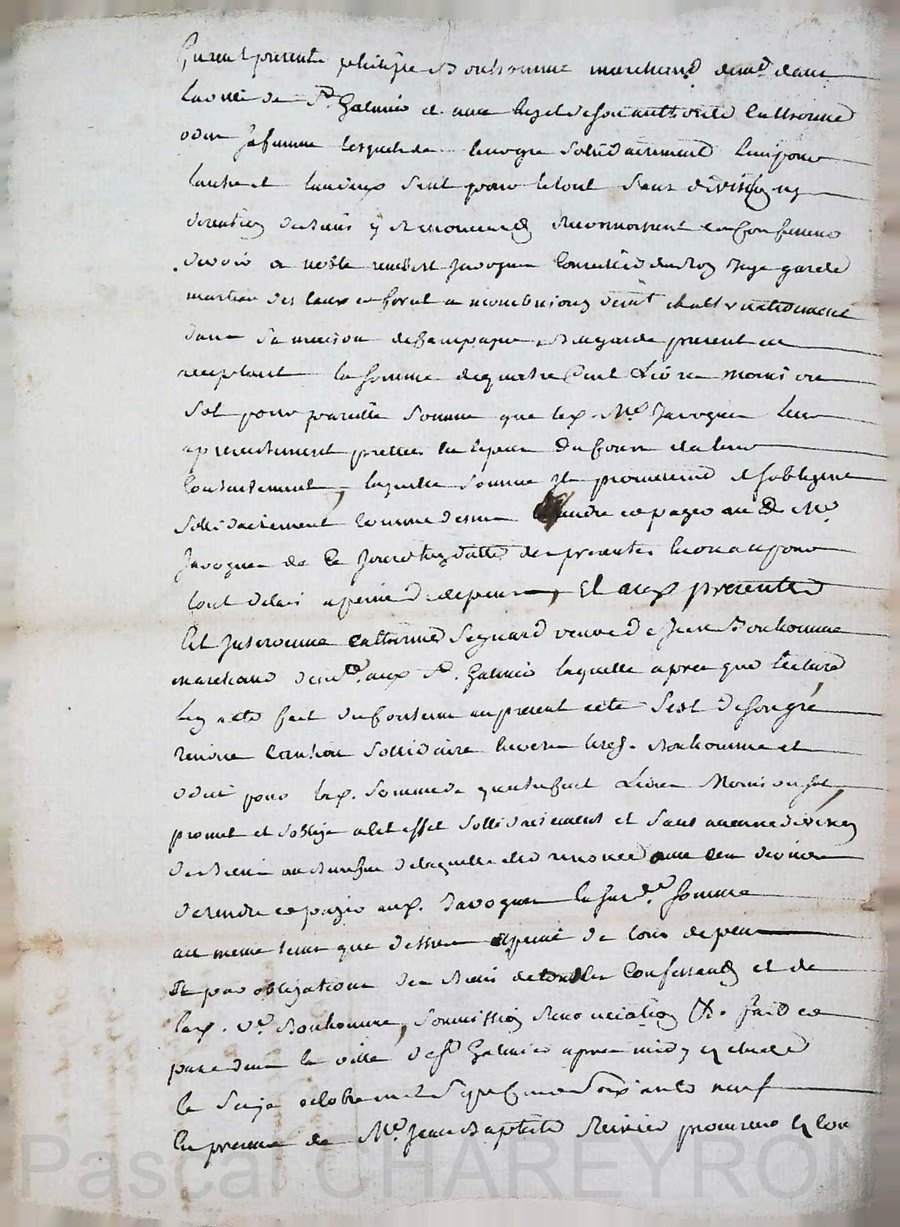 present philipe Bonhomme marchand demt dans
la ville de St. Galmier et avec luy et de son authorité Catherine
odin sa femme lesquels de leur gre sollidairement l'un pour
l'autre et l'un deux seul pour le tout sans division ny
de biens y renonceand reconnoissent et confessent
devoir a noble rambert Javogues Conseiller du Roy Juge garde
marteau des Eaux et foret a montbrison demt
dans sa maison de Campagne present et
acceptant la somme de quatre Cent Livres moins un
sol pour pareille somme que led. Mr. Javogues leur
a presentement pretté au leur
Contentement, laquelle somme ils promettent et sobligent
sollidairement comme dessus rendre et payer au d. Mr.
Javogues de ce jourdhuy datte des presentes en un an pour
tout delais a peine de depens, Et aux presentes
Est intervenue Catherine Seignard veuve de Jean Bonhomme
marchand demt. aud. St. Galmier laquelle apres que lecture
luy a été fait du contenu au present acte s'est de son gré
rendue Caution sollidaire envers lesd. Bonhomme et
odin pour lad. somme de quatre Cent Livres Moins un sol
promet et soblige a cet effet sollidairement et sans aucune division
de biens au benefice de laquelle elle a renoncé
de rendre et payer aud. Javogues la susd. somme
au meme tems que dessus a peine de tous depens
Et par obligations des biens desdits Confessands et de
lad. ve. Bonhomme, soumission Renonciation &c. fait et
passé dans la ville de St Galmier apres midy
le seize octobre mil sept Cent soixante neuf
en presence de Me. Jean Baptiste procureur
Pascal CHAREYRON